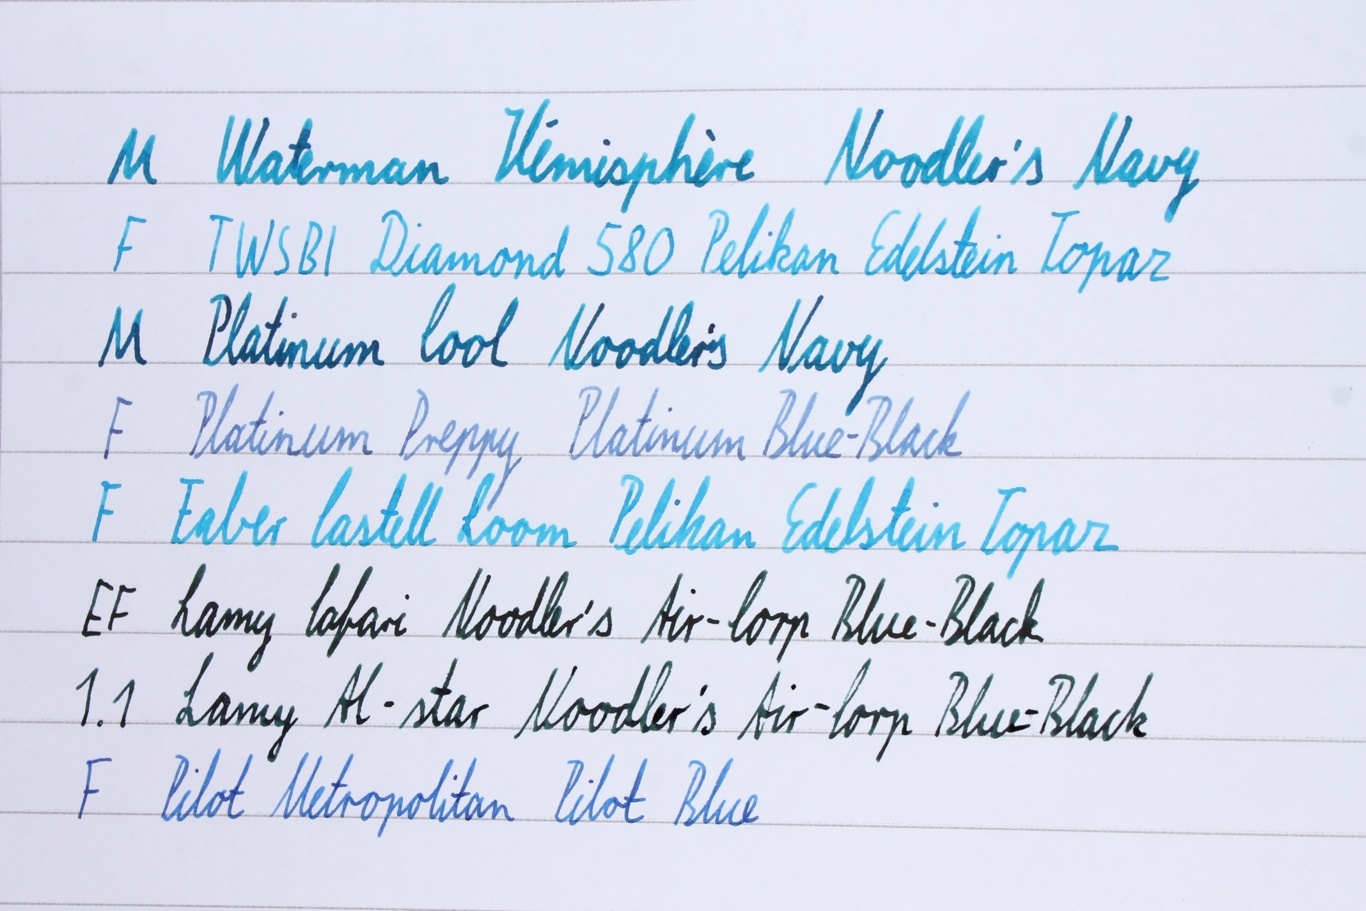 M Waterman Hémisphère Noodler's Navy
F TWSBI Diamond 580 Pelikan Edelstein Topaz
M Platinum Cool Noodler's Navy
F Platinum Preppy Platinum Blue-Black
F Faber Castell Loom Pelikan Edelstein Topaz
EF Lamy Safari Noodler's Air-Corp Blue-Black
1.1 Lamy Al-star Noodler's Air-Corp Blue-Black
F Pilot Metropolitan Pilot Blue